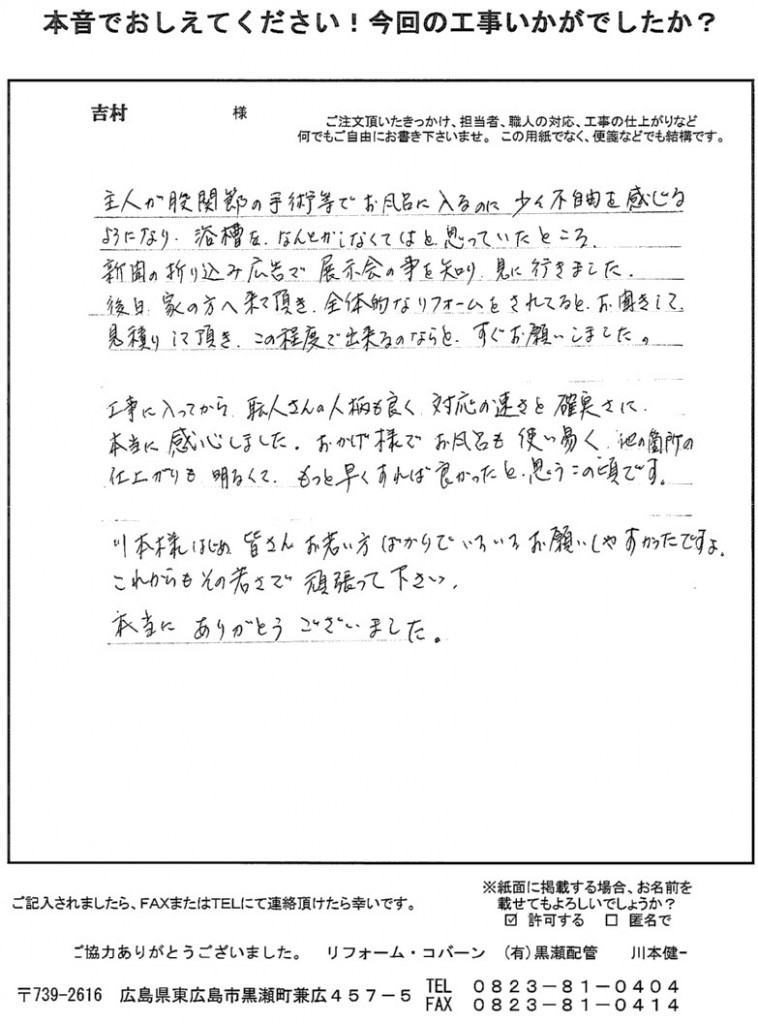 本音でおしえてください！今回の工事いかがでしたか？
吉村　様
ご注文頂いたきっかけ、担当者、職人の対応、工事の仕上がりなど
何でもご自由にお書き下さいませ。この用紙でなく、便箋などでも結構です。
主人が股関節の手術等でお風呂に入るのに少く不自由を感じる
ようになり、浴槽を、なんとかしなくてはと思っていたところ、
新聞の折り込み広告で展示会の事を知り、見に行きました。
後日、家の方へ来て頂き、全体的なリフォームをされてると、お聞きして、
見積りして頂き、この程度で出来るのならと、すぐお願いしました。
工事に入ってから、職人さんの人柄も良く、対応の速さと確実さに、
本当に感心しました。おかげ様でお風呂も使い易く、他の箇所の
仕上がりも明るくて、もっと早くすれば良かったと、思うこの頃です。
川本様はじめ皆さんお若い方ばかりでいろいろお願いしやすかったですよ。
これからもその若さで頑張って下さい。
本当にありがとうございました。
ご記入されましたら、FAXまたはTELにて連絡頂けたら幸いです。
※紙面に掲載する場合、お名前を
載せてもよろしいでしょうか？
☑ 許可する　□ 匿名で
ご協力ありがとうございました。　リフォーム・コバーン　（有）黒瀬配管　川本健一
〒739-2616　広島県東広島市黒瀬町兼広４５７－５
TEL　０８２３－８１－０４０４
FAX　０８２３－８１－０４１４